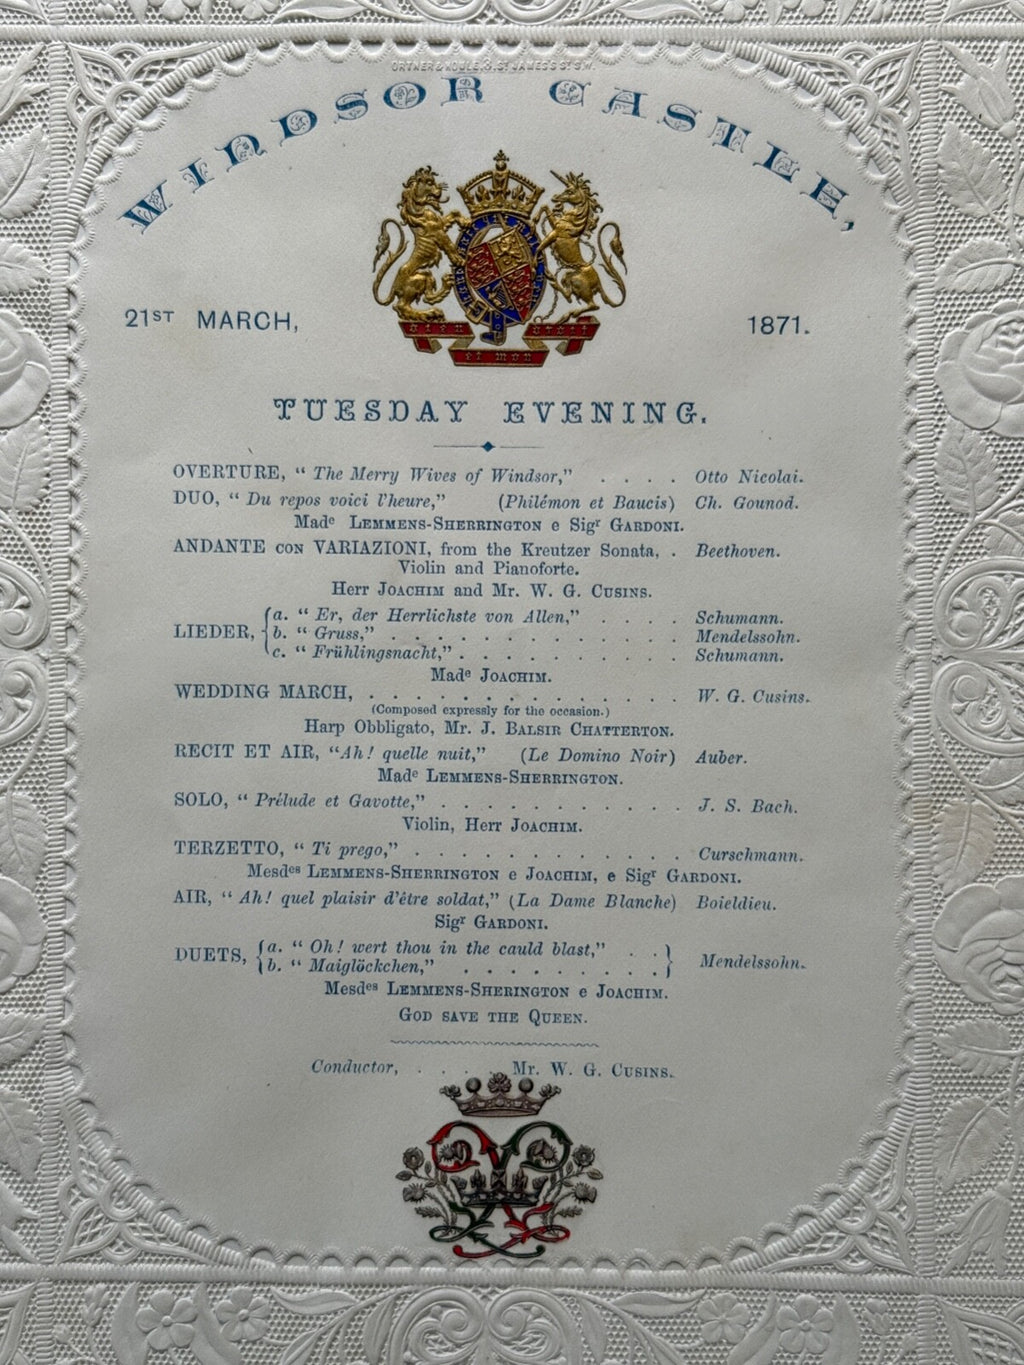 ORTNER & HOULE, 3, ST JAMES'S ST S.W.
WINDSOR CASTLE,
21ST MARCH, 1871.
DIEU DROIT
ET MON
TUESDAY EVENING.
OVERTURE, “ The Merry Wives of Windsor,” . . . . Otto Nicolai.
DUO, “ Du repos voici l'heure,” (Philémon et Baucis) Ch. Gounod.
Made LEMMENS-SHERRINGTON e Sigr GARDONI.
ANDANTE CON VARIAZIONI, from the Kreutzer Sonata, . Beethoven.
Violin and Pianoforte.
Herr JOACHIM and Mr. W. G. CUSINS.
LIEDER, a. “ Er, der Herrlichste von Allen,” . . . . Schumann.
b. “ Gruss,” . . . . . . . . . . . . . Mendelssohn.
c. “ Frühlingsnacht,” . . . . . . . . . . Schumann.
Made JOACHIM.
WEDDING MARCH, . . . . . . . . . . . . . . W. G. Cusins.
(Composed expressly for the occasion.)
Harp Obbligato, Mr. J. BALSIR CHATTERTON.
RECIT ET AIR, “Ah! quelle nuit,” (Le Domino Noir) Auber.
Made LEMMENS-SHERRINGTON.
SOLO, “ Prélude et Gavotte,” . . . . . . . . . . . J. S. Bach.
Violin, Herr JOACHIM.
TERZETTO, “ Ti prego,” . . . . . . . . . . . . Curschmann.
Mesdes LEMMENS-SHERRINGTON e JOACHIM, e Sigr GARDONI.
AIR, “ Ah! quel plaisir d'être soldat,” (La Dame Blanche) Boieldieu.
Sigr GARDONI.
DUETS, a. “ Oh! wert thou in the cauld blast,” . . Mendelssohn.
b. “ Maiglöckchen,” . . . . . . . . .
Mesdes LEMMENS-SHERINGTON e JOACHIM.
GOD SAVE THE QUEEN.
Conductor, . . . Mr. W. G. CUSINS.